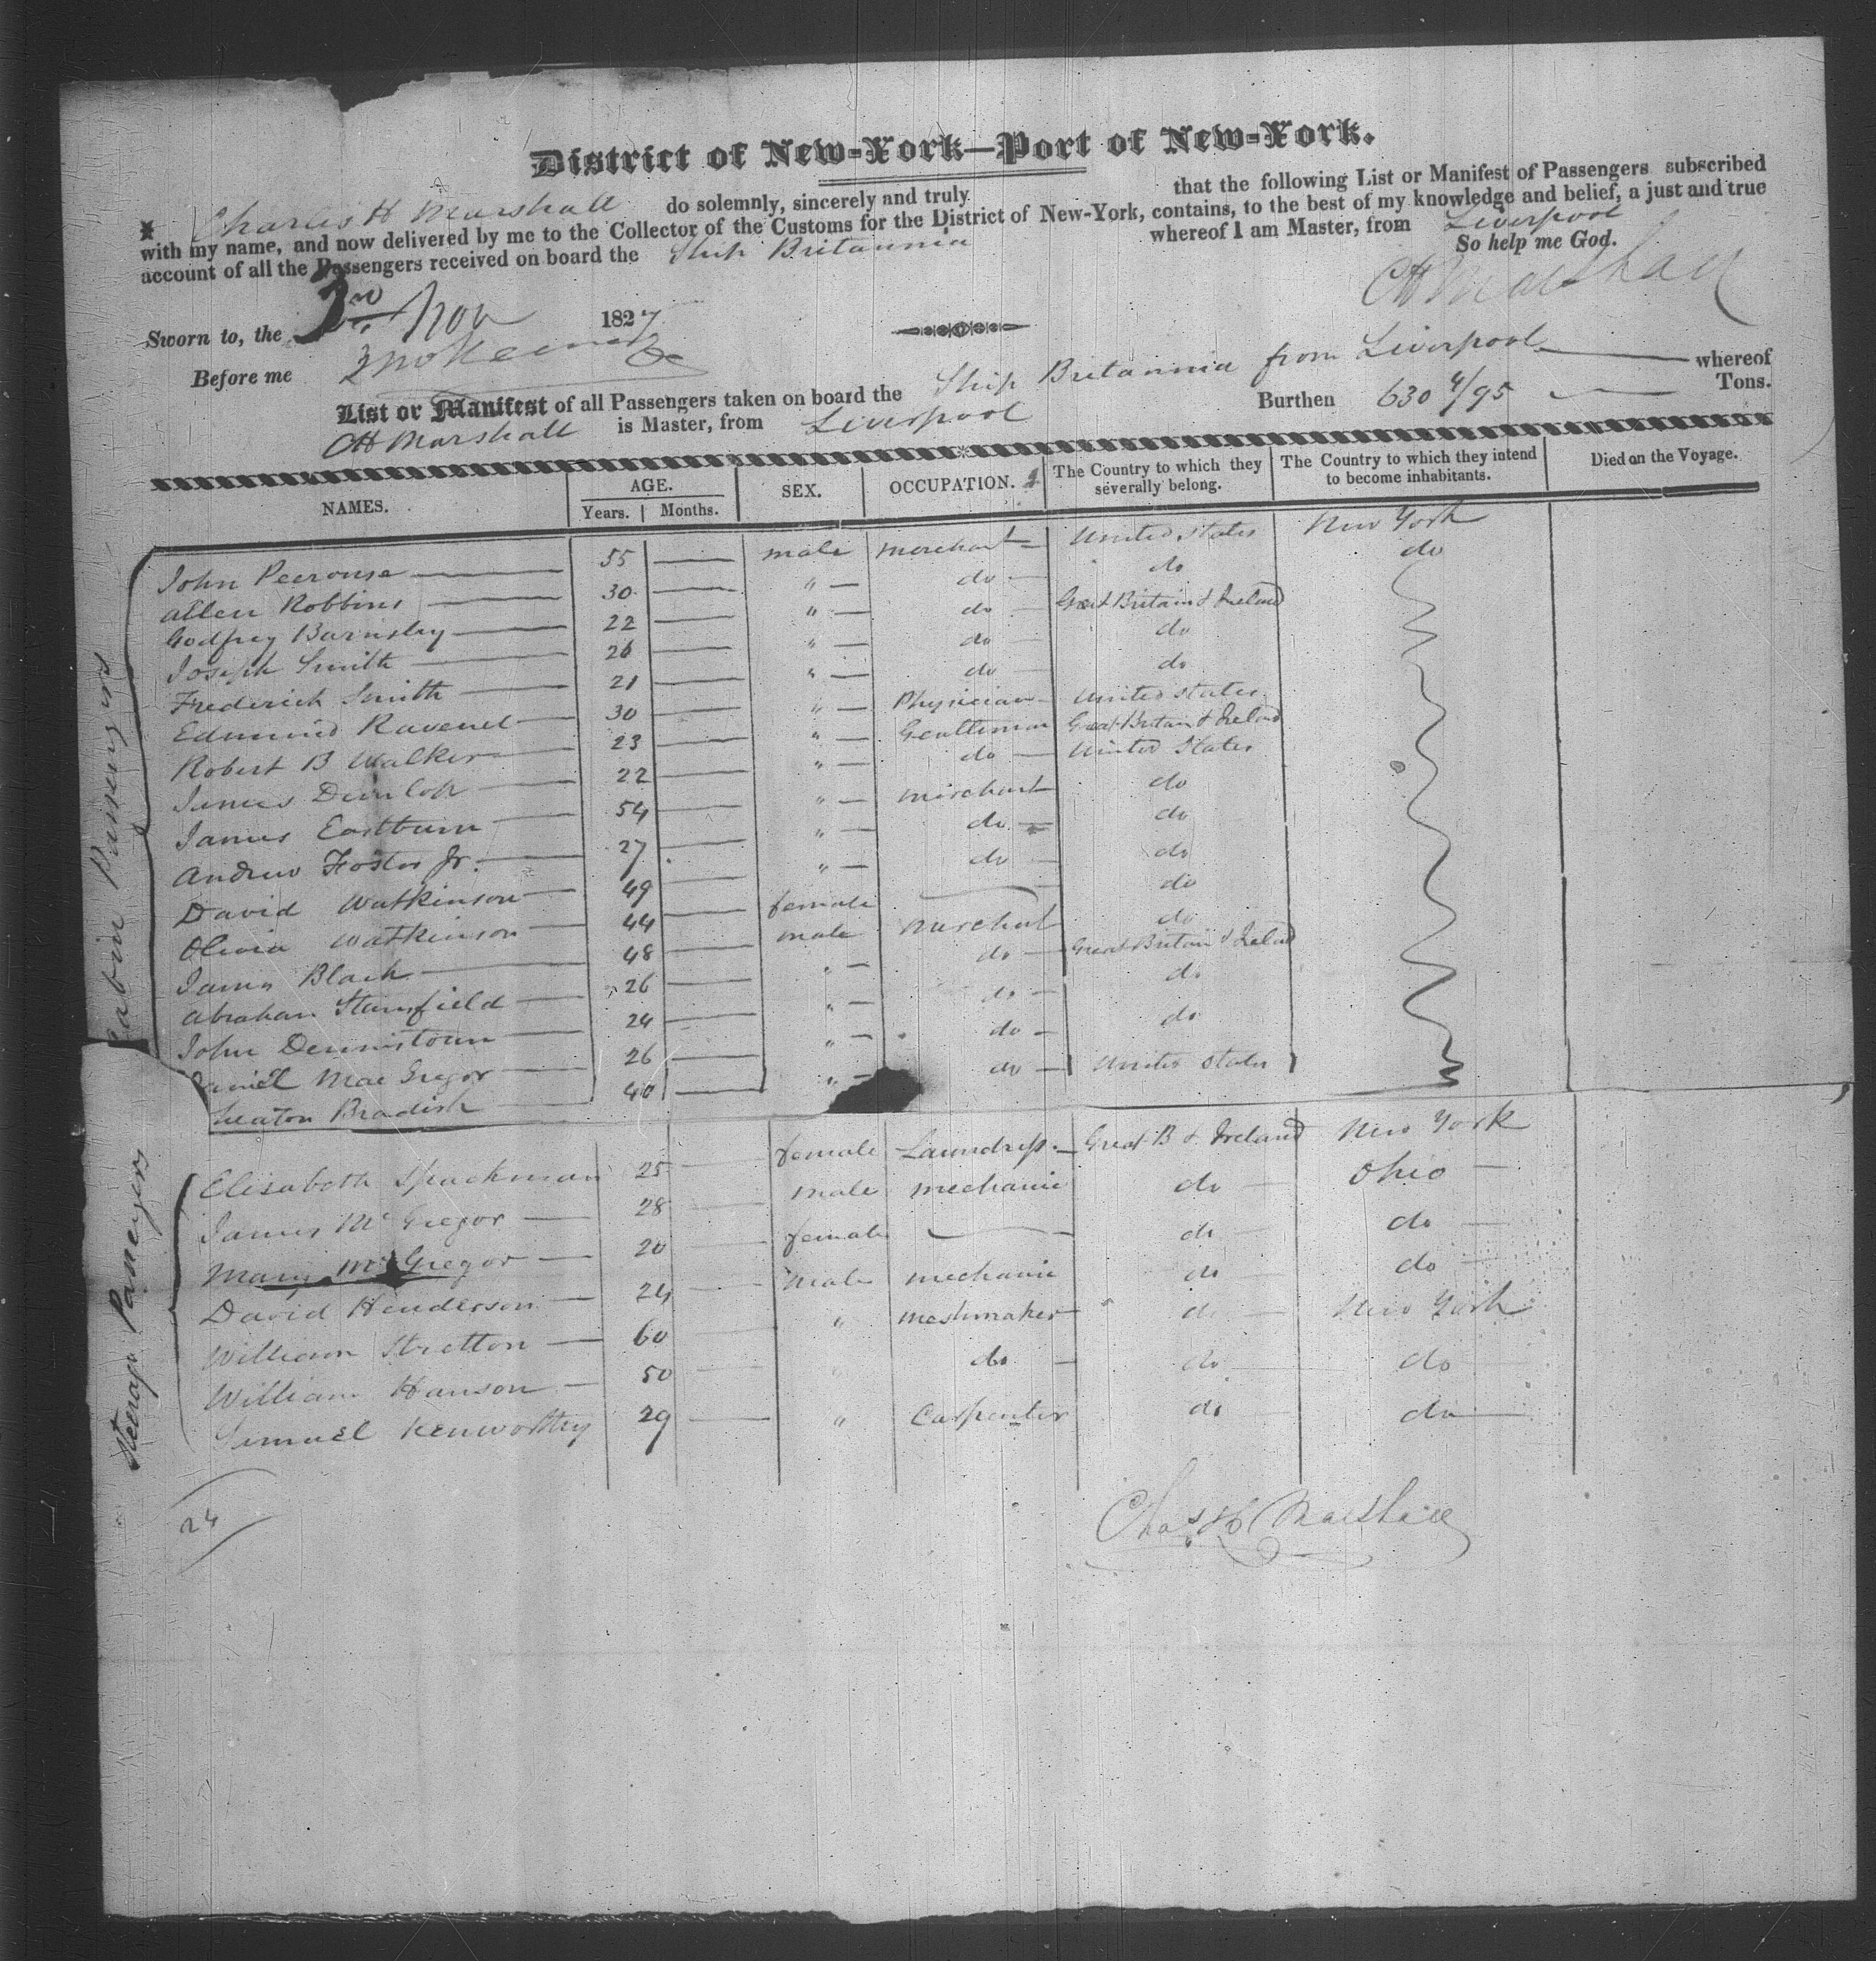 District of New-York—Port of New-York.
I, Charles H Marshall do solemnly, sincerely and truly that the following List or Manifest of Passengers subscribed
with my name, and now delivered by me to the Collector of the Customs for the District of New-York, contains, to the best of my knowledge and belief, a just and true
account of all the Passengers received on board the Ship Britannia whereof I am Master, from Liverpool
So help me God.
Sworn to, the 3rd Nov 1827 CH Marshall
Before me
List or Manifest of all Passengers taken on board the Ship Britannia from Liverpool whereof
CH Marshall is Master, from Liverpool Burthen 630 4/95 Tons.
NAMES. AGE. Years. Months. SEX. OCCUPATION. The Country to which they severally belong. The Country to which they intend to become inhabitants. Died on the Voyage.
Cabin Passengers
John Peerouse 55 male merchant United States New York
Allen Robbins 30 " do do do
Godfrey Barnsley 22 " do Great Britain & Ireland
Joseph Smith 26 " do do
Frederick Smith 21 " do do
Edmund Ravenel 30 " Physician United States
Robert B Walker 23 " Gentleman Great Britain & Ireland
James Dunlop 22 " do United States
James Eastburn 54 " merchant do
Andrew Foster Jr. 27 " do do
David Watkinson 49 " do do
Olivia Watkinson 44 female do
James Black 48 male merchant do
Abraham Stansfield 26 " do Great Britain & Ireland
John Dennistoun 24 " do do
Daniel MacGregor 26 " do do
Seaton Bradish 40 " do United States
Steerage Passengers
Elisabeth Spackman 25 female Laundress Great B & Ireland New York
James McGregor 28 male mechanic do Ohio
Mary McGregor 20 female do do
David Henderson 24 male mechanic do do
William Stretton 60 " mashmaker do New York
William Hanson 50 " do do do
Samuel Kenworthy 29 " Carpenter do do
24
Chas H Marshall